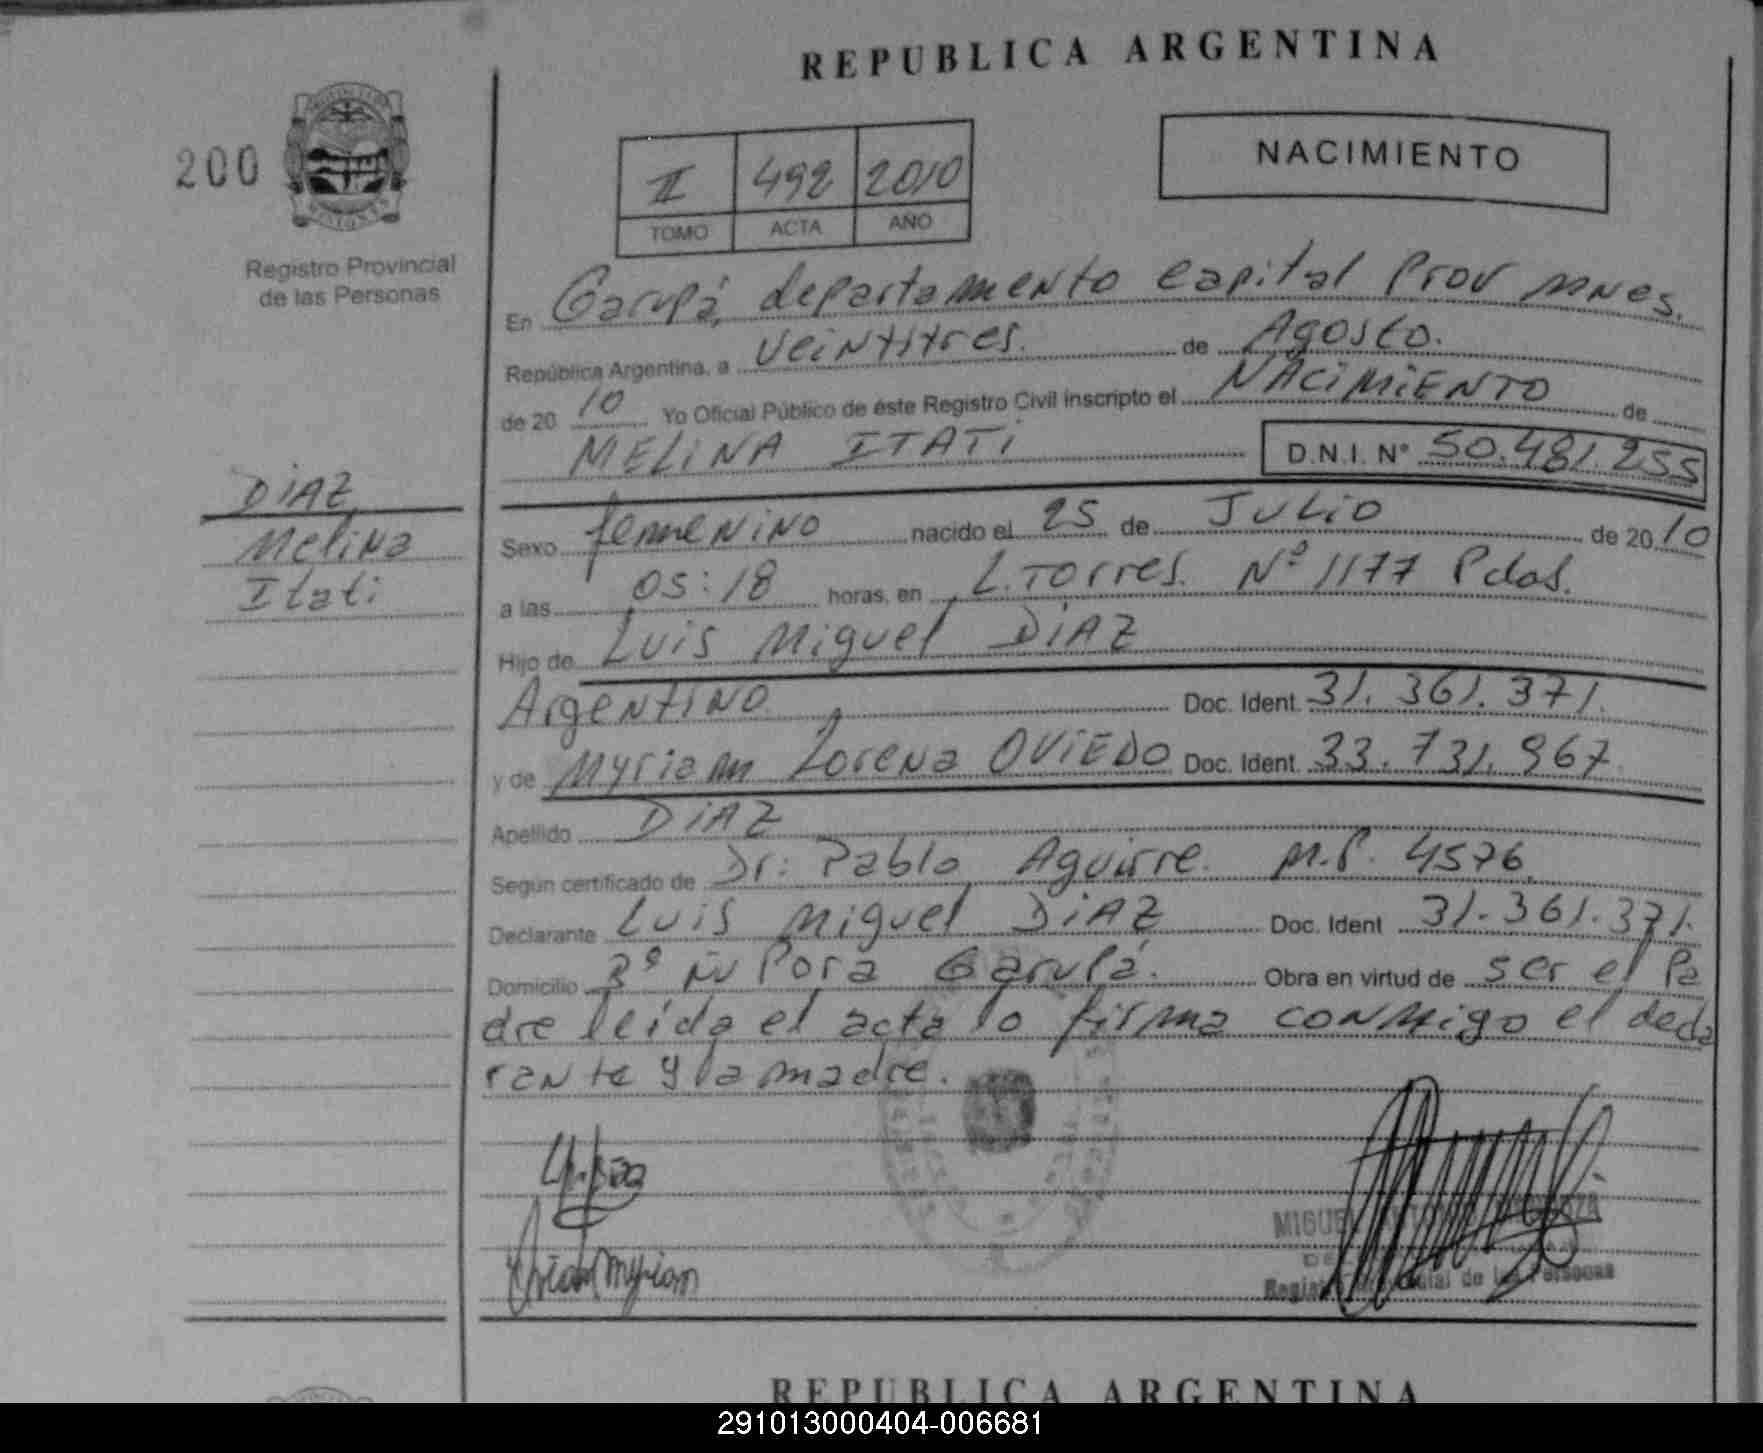 REPUBLICA ARGENTINA
200
NACIMIENTO
II 492 2010
TOMO ACTA AÑO
Registro Provincial
de las Personas
En Garupá, departamento Capital Prov Mnes.
República Argentina, a veintitres. de Agosto.
de 20 10 Yo Oficial Público de éste Registro Civil inscripto el NACIMIENTO de
MELINA ITATI D.N.I. N° 50.481.255
DIAZ
Melina
Itati
Sexo femenino nacido el 25 de JULIO de 20 10
a las 05:18 horas, en L. Torres. Nº 1177 Pdas.
Hijo de Luis Miguel DIAZ
Argentino. Doc. Ident. 31.361.371.
y de Myriam Lorena OVIEDO Doc. Ident. 33.731.967
Apellido DIAZ
Según certificado de Dr: Pablo Aguirre. M.P. 4576.
Declarante Luis Miguel DIAZ Doc. Ident 31.361.371.
Domicilio Bº Ñu Pora Garupá. Obra en virtud de ser el Pa
dre leida el acta lo firma conmigo el decla
rante y la madre.
Myriam
MIGUEL ANTONIO
Registro Provincial de las Personas
REPUBLICA ARGENTINA
291013000404-006681